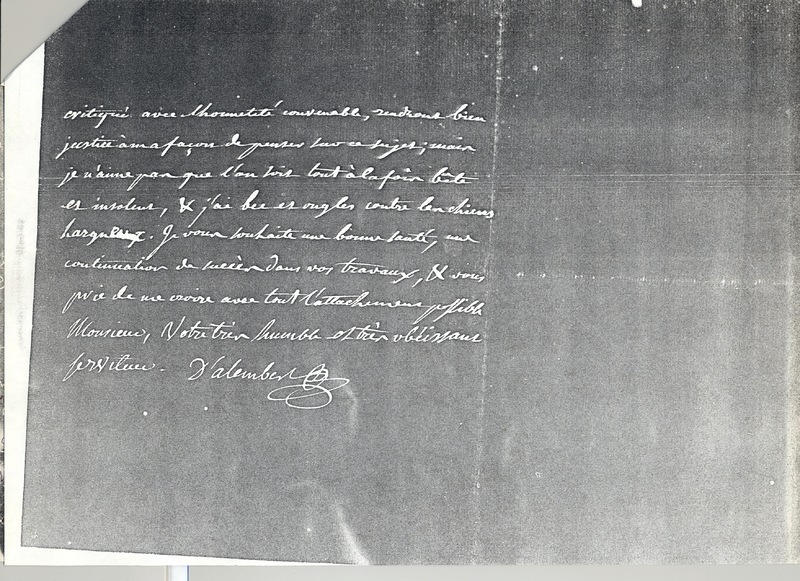 critiqué avec l'honnêteté convenable, rendront bien
justice à ma façon de penser sur ce sujet; mais
je n'aime pas que l'on soit tout à la fois bête
et insolent, & j'ai bec et ongles contre les chiens
hargneux. Je vous souhaite une bonne santé, une
continuation de succès dans vos travaux, & vous
prie de me croire avec tout l'attachement possible
Monsieur, Votre très humble et très obéissant
serviteur. D'alembert